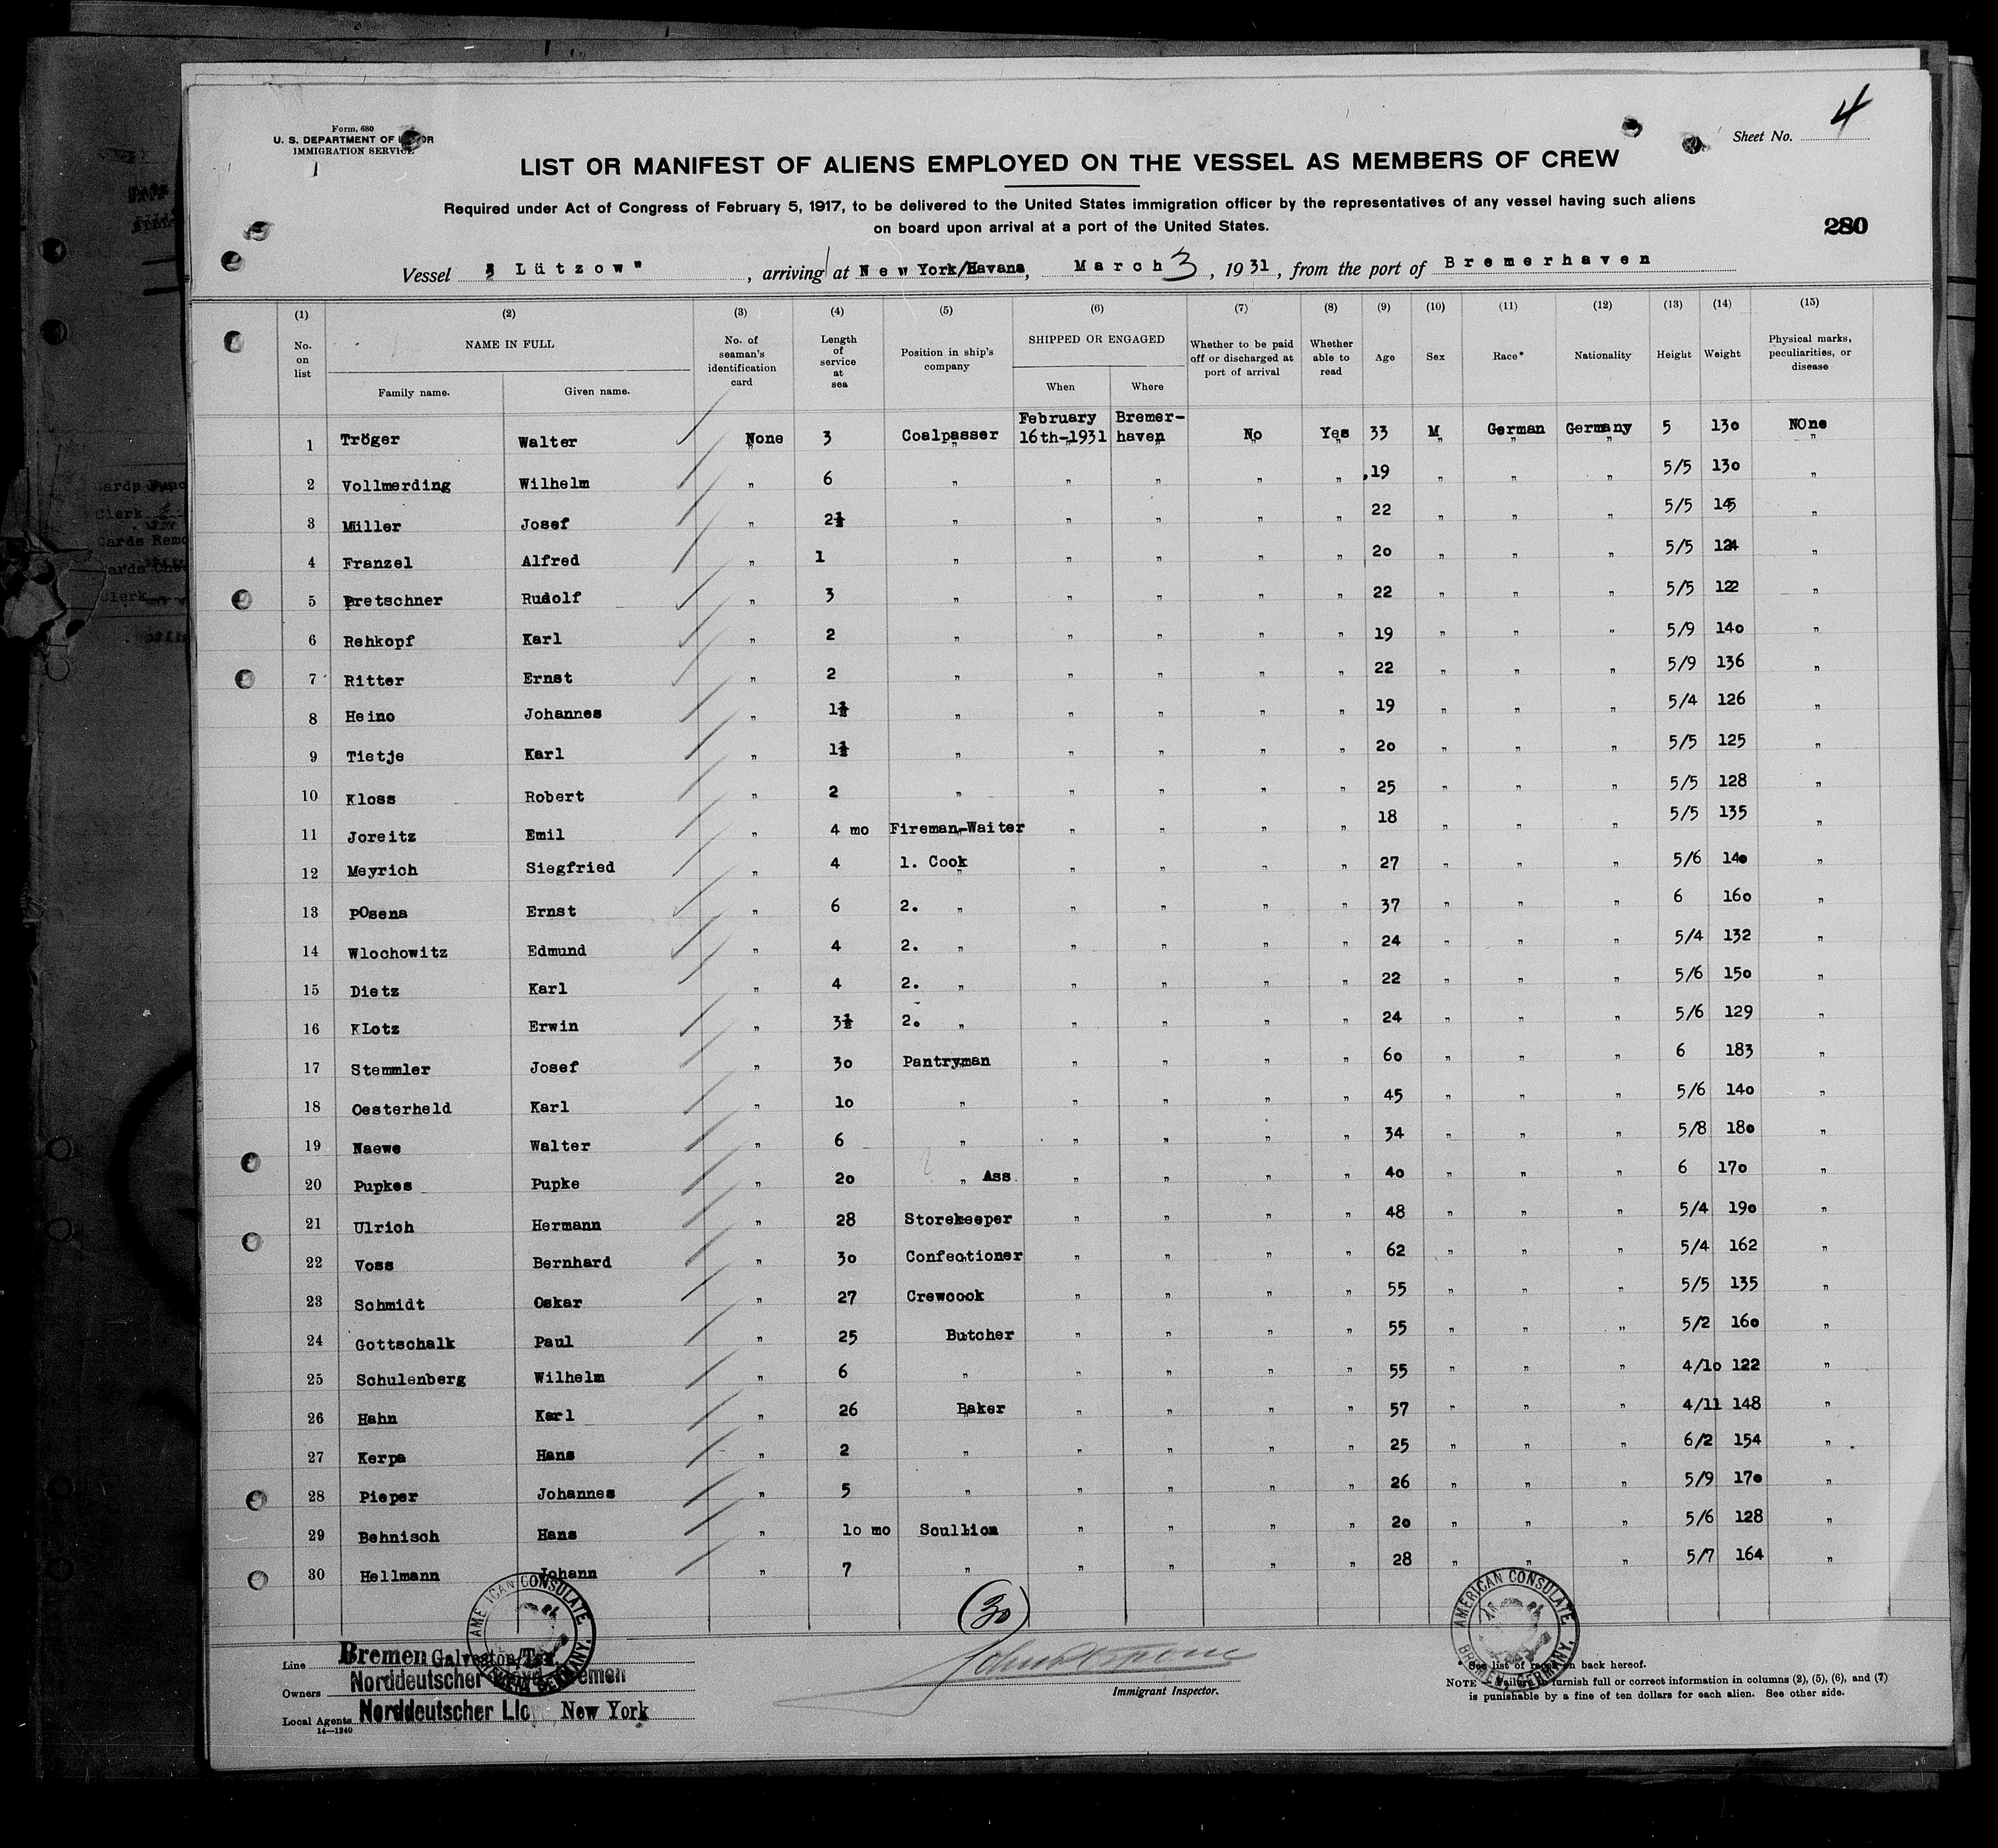 Form. 680
U. S. DEPARTMENT OF LABOR
IMMIGRATION SERVICE
Sheet No. 4
LIST OR MANIFEST OF ALIENS EMPLOYED ON THE VESSEL AS MEMBERS OF CREW
Required under Act of Congress of February 5, 1917, to be delivered to the United States immigration officer by the representatives of any vessel having such aliens
on board upon arrival at a port of the United States.
280
Vessel " Lützow " , arriving at New York/Havana, March 3, 1931, from the port of Bremerhaven
(1) (2) (3) (4) (5) (6) (7) (8) (9) (10) (11) (12) (13) (14) (15)
No. on list NAME IN FULL Family name. Given name. No. of seaman's identification card Length of service at sea Position in ship's company SHIPPED OR ENGAGED When Where Whether to be paid off or discharged at port of arrival Whether able to read Age Sex Race* Nationality Height Weight Physical marks, peculiarities, or disease
1 Tröger Walter None 3 Coalpasser February 16th-1931 Bremer-haven No Yes 33 M German Germany 5 130 NOne
2 Vollmerding Wilhelm " 6 " " " " " 19 " " " 5/5 130 "
3 Müller Josef " 2½ " " " " " 22 " " " 5/5 145 "
4 Franzel Alfred " 1 " " " " " 20 " " " 5/5 124 "
5 Pretschner Rudolf " 3 " " " " " 22 " " " 5/5 122 "
6 Rehkopf Karl " 2 " " " " " 19 " " " 5/9 140 "
7 Ritter Ernst " 2 " " " " " 22 " " " 5/9 136 "
8 Heino Johannes " 1½ " " " " " 19 " " " 5/4 126 "
9 Tietje Karl " 1½ " " " " " 20 " " " 5/5 125 "
10 Kloss Robert " 2 " " " " " 25 " " " 5/5 128 "
11 Joreitz Emil " 4 mo Fireman-Waiter " " " " 18 " " " 5/5 135 "
12 Meyrich Siegfried " 4 1. Cook " " " " 27 " " " 5/6 140 "
13 POsena Ernst " 6 2. " " " " " 37 " " " 6 160 "
14 Wlochowitz Edmund " 4 2. " " " " " 24 " " " 5/4 132 "
15 Dietz Karl " 4 2. " " " " " 22 " " " 5/6 150 "
16 KLotz Erwin " 3½ 2. " " " " " 24 " " " 5/6 129 "
17 Stemmler Josef " 30 Pantryman " " " " 60 " " " 6 183 "
18 Oesterheld Karl " 10 " " " " " 45 " " " 5/6 140 "
19 Naewe Walter " 6 " " " " " 34 " " " 5/8 180 "
20 Pupkes Pupke " 20 " Ass. " " " " 40 " " " 6 170 "
21 Ulrich Hermann " 28 Storekeeper " " " " 48 " " " 5/4 190 "
22 Voss Bernhard " 30 Confectioner " " " " 62 " " " 5/4 162 "
23 Schmidt Oskar " 27 Crewcook " " " " 55 " " " 5/5 135 "
24 Gottschalk Paul " 25 Butcher " " " " 55 " " " 5/2 160 "
25 Schulenberg Wilhelm " 6 " " " " " 55 " " " 4/10 122 "
26 Hahn Karl " 26 Baker " " " " 57 " " " 4/11 148 "
27 Kerpa Hans " 2 " " " " " 25 " " " 6/2 154 "
28 Pieper Johannes " 5 " " " " " 26 " " " 5/9 170 "
29 Behnisch Hans " 10 mo Scullion " " " " 20 " " " 5/6 128 "
30 Hellmann Johann " 7 " " " " " 28 " " " 5/7 164 "
(30)
AMERICAN CONSULATE, BREMEN, GERMANY.
AMERICAN CONSULATE, BREMEN, GERMANY.
Line Bremen Galveston/Tex.
Owners Norddeutscher Lloyd Bremen
Local Agents Norddeutscher Llo New York
14—1240
Immigrant Inspector.
* See list of races on back hereof.
NOTE.—Failure to furnish full or correct information in columns (2), (5), (6), and (7)
is punishable by a fine of ten dollars for each alien. See other side.